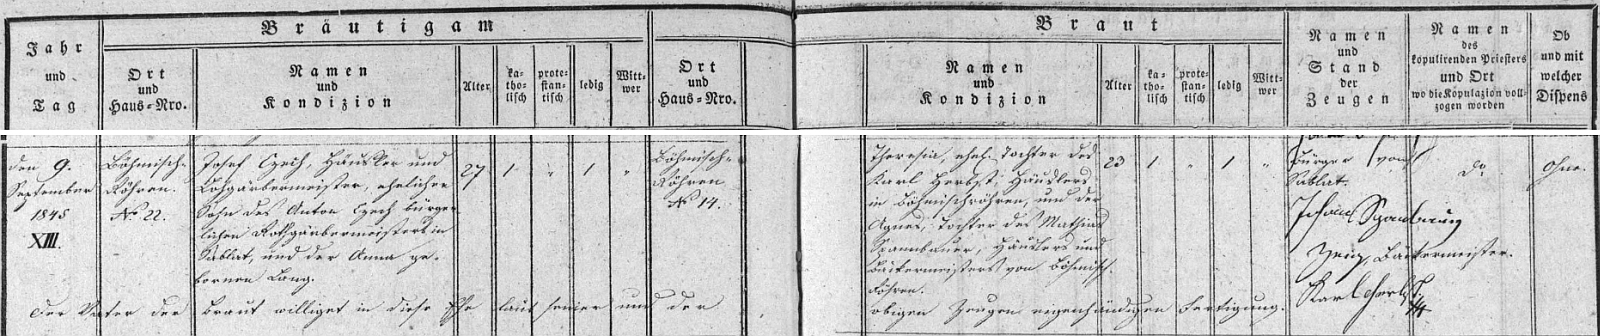 Bräutigam
Braut
Jahr
und
Tag.
Ort
und
Haus=Nro.
Namen
und
Kondizion
Alter
ka=
tho=
lisch
prote=
stan=
tisch
ledig
Witt=
wer
Ort
und
Haus=Nro.
Namen
und
Kondizion
Alter
ka=
tho=
lisch
prote=
stan=
tisch
ledig
Witt=
wer
Namen
und
Stand
der
Zeugen
Namen
des
kopulirenden Priesters
und Ort
wo die Kopulazion voll=
zogen worden
Ob
und mit
welcher
Dispens
den 9.
September
1845
XIII.
Böhmisch=
Röhren.
No 22.
Josef Czech, Häusler und
Lohgärbermeister, ehelicher
Sohn des Anton Czech bürger=
lichen Rothgärbermeisters in
Sablat, und der Anna ge=
bornen Lang.
27
1
"
1
"
Böhmisch=
Röhren
No 14.
Theresia, ehel. Tochter des
Karl Herbst, Häuslers
in Böhmischröhren, und der
Agnes, Tochter des Mathias
Spannbauer, Häuslers und
Bäckermeisters von Böhmisch=
röhren.
23
1
"
1
"
Bürger von
Sablat.
Johann
Zeug, Bäckermeister.
Karl Herbst
do
Ohne.
Der Vater der Braut williget in diese Ehe laut seiner und der
obigen Zeugen eigenhändigen Fertigung.